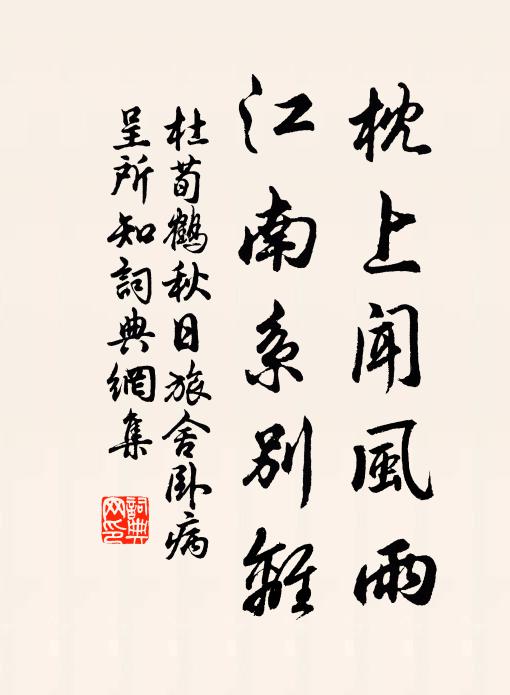 枕上聞風雨
江南系別離
杜荀鶴秋日旅舍卧病
呈所知詞典網集
詞典
网印